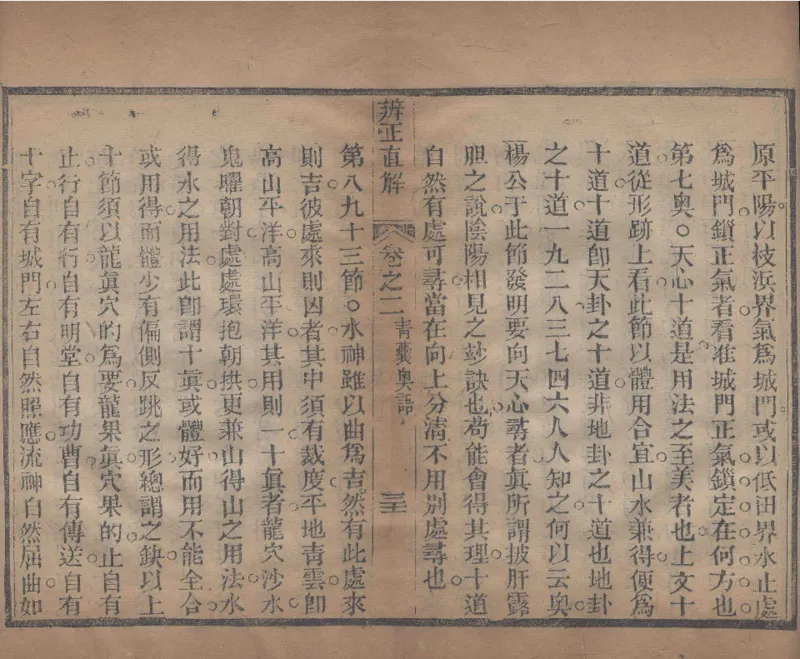 原平陽以枝浜界氣爲城門或以低田界水止處
爲城門鎖正氣者看在城門正氣鎖定在何方也
第七奧〇天心十道是用法之至美者也上文十
道從形跡上看此節以體用合宜山水兼得便爲
十道十道卽天卦之十道非地卦之十道也地卦
之十道一九二八三七四六人人知之何以云奧
楊公于此節發明要向天心尋者眞所謂披肝露
胆之說陰陽相見之玅訣也苟能會得其理十道
自然有處可尋當在向上分淸不用別處尋也
辨正直解 卷之二 靑囊奧語 三十
第八九十三節〇水神雖以曲爲吉然有此處來
則吉彼處來則凶者其中須有裁度平地靑雲卽
高山平洋高山平洋其用則一十眞者龍穴沙水
鬼曜朝對處處環抱朝拱更兼山得山之用法水
得水之用法此卽謂十眞或體好而用不能全合
或用得而體少有偏側反跳之形總謂之缺以上
十節須以龍眞穴的爲要龍果眞穴果的止自有
止行自有行自有明堂自有功曹自有傳送自有
十字自有城門左右自然照應流神自然屈曲如